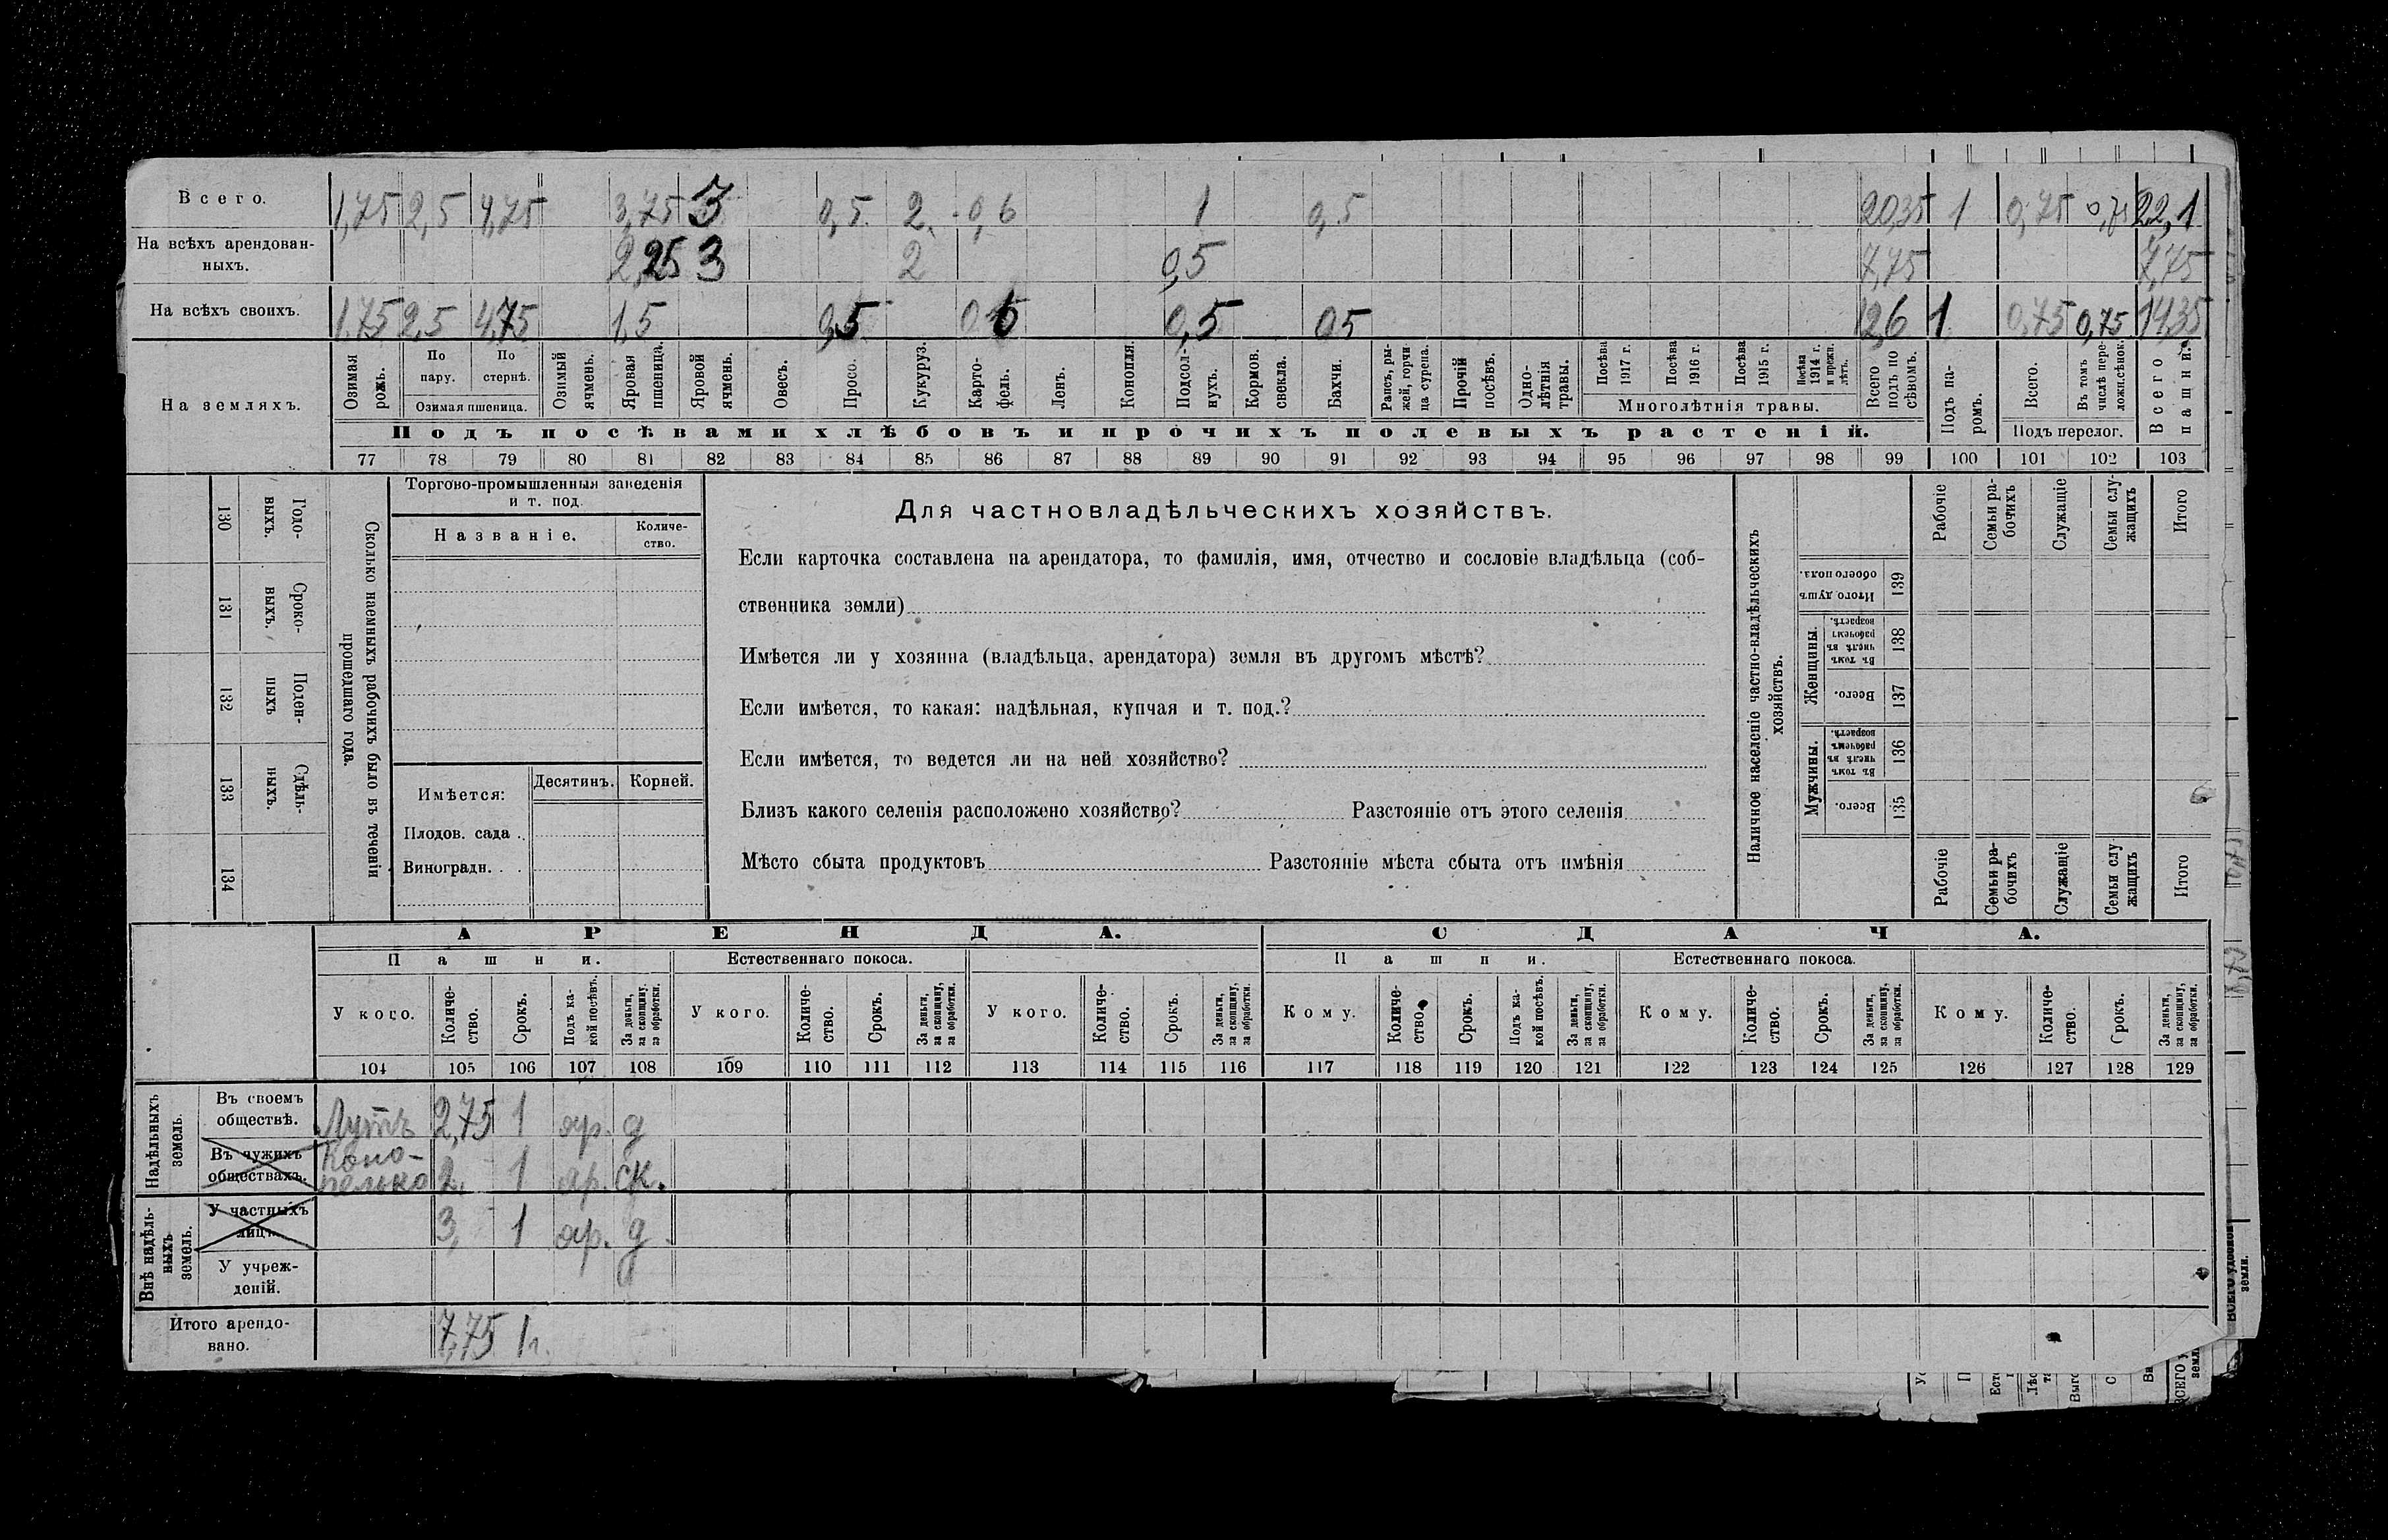 Всего. 1,75 2,5 4,75 3,75 3 0,5 2 0,6 1 0,5 20,35 1 0,75 0,75 22,1
На всѣхъ арендован-
ныхъ. 2,25 3 2 0,5 7,75 7,75
На всѣхъ своихъ. 1,75 2,5 4,75 1,5 0,5 0,6 0,5 0,5 12,6 1 0,75 0,75 14,35
На земляхъ.
Озимая рожь.
По пару.
По стернѣ.
Озимая пшеница.
Озимый ячмень.
Яровая пшеница.
Яровой ячмень.
Овесъ.
Просо.
Кукуруз.
Карто-
фель.
Ленъ.
Конопля.
Подсол-
нухъ.
Кормов.
свекла.
Бахчи.
Рапсъ, ры-
жей, горчи
ца сурепа.
Прочій
посѣвъ.
Одно-
лѣтнія
травы.
Посѣва
1917 г.
Посѣва
1916 г.
Посѣва
1915 г.
Посѣва
1914 г.
и прежн.
лѣтъ.
Многолѣтнія травы.
Всего
подъ по
сѣвомъ.
Подъ па-
ромъ.
Всего.
Въ томъ
числѣ пере-
ложн.сѣнок.
Подъ перелог.
Всего
пашни.
Подъ посѣвами хлѣбовъ и прочихъ полевыхъ растеній.
77 78 79 80 81 82 83 84 85 86 87 88 89 90 91 92 93 94 95 96 97 98 99 100 101 102 103
Сколько наемныхъ рабочихъ было въ теченіи
прошедшаго года.
Годо-
выхъ.
130
Сроко-
ныхъ.
131
Поден-
ныхъ
132
Сдѣль-
ныхъ.
133
134
Торгово-промышленныя заведенія
и т. под.
Названіе.
Количе-
ство.
Имѣется:
Десятинъ.
Корней.
Плодов. сада .
Виноградн. . .
Для частновладѣльческихъ хозяйствъ.
Если карточка составлена на арендатора, то фамилія, имя, отчество и сословіе владѣльца (соб-
ственника земли)
Имѣется ли у хозяина (владѣльца, арендатора) земля въ другомъ мѣстѣ?
Если имѣется, то какая: надѣльная, купчая и т. под.?
Если имѣется, то ведется ли на ней хозяйство?
Близъ какого селенія расположено хозяйство? Разстояніе отъ этого селенія
Мѣсто сбыта продуктовъ Разстояніе мѣста сбыта отъ имѣнія
Наличное населеніе частно-владѣльческихъ
хозяйствъ.
Рабочіе
Семьи ра-
бочихъ
Служащіе
Семьи слу-
жащихъ
Итого
Итого душ
обоего пола.
139
Женщины.
Въ томъ
числѣ въ
рабочемъ
возрастѣ.
138
Всего.
137
Мужчины.
Въ томъ
числѣ въ
рабочемъ
возрастѣ.
136
Всего.
135
Рабочіе
Семьи ра-
бочихъ
Служащіе
Семьи слу
жащихъ
Итого
АРЕНДА. СДАЧА.
Пашни. Естественнаго покоса. Пашни. Естественнаго покоса.
У кого.
Количе-
ство.
Срокъ.
Подъ ка-
кой посѣвъ.
За деньги,
за скопщину,
за обработки.
У кого.
Количе-
ство.
Срокъ.
За деньги,
за скопщину,
за обработки.
У кого.
Количе-
ство.
Срокъ.
За деньги,
за скопщину,
за обработки.
Кому.
Количе-
ство.
Срокъ.
Подъ ка-
кой посѣвъ.
За деньги,
за скопщину,
за обработки.
Кому.
Количе-
ство.
Срокъ.
За деньги,
за скопщину,
за обработки.
Кому.
Количе-
ство.
Срокъ.
За деньги,
за скопщину,
за обработки.
104 105 106 107 108 109 110 111 112 113 114 115 116 117 118 119 120 121 122 123 124 125 126 127 128 129
Надѣльныхъ
земель.
Въ своемъ
обществѣ. 2,75 1 яр. д
Въ чужихъ
обществахъ. Коно-
пелько 2. 1 яр. ск.
Внѣ надѣль-
ныхъ
земель.
У частныхъ
лицъ. 3, 1 яр. д
У учреж-
деній.
Итого арендо-
вано. 7,75
земли.